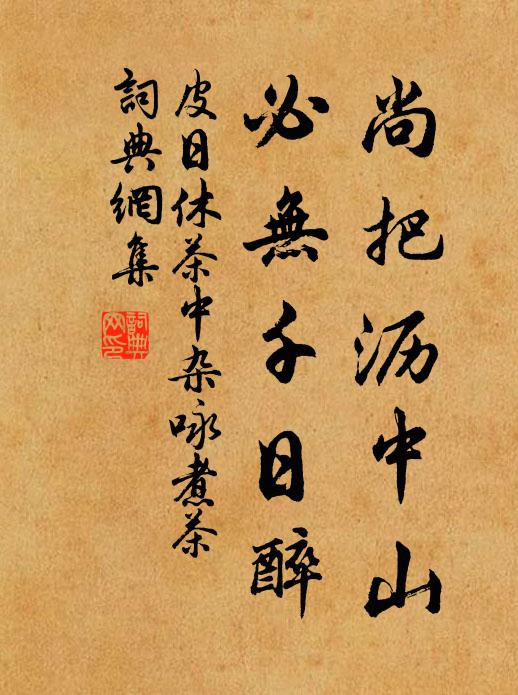 尚把沥中山
必無千日醉
皮日休茶中杂咏煮茶
詞典網集
詞典网印